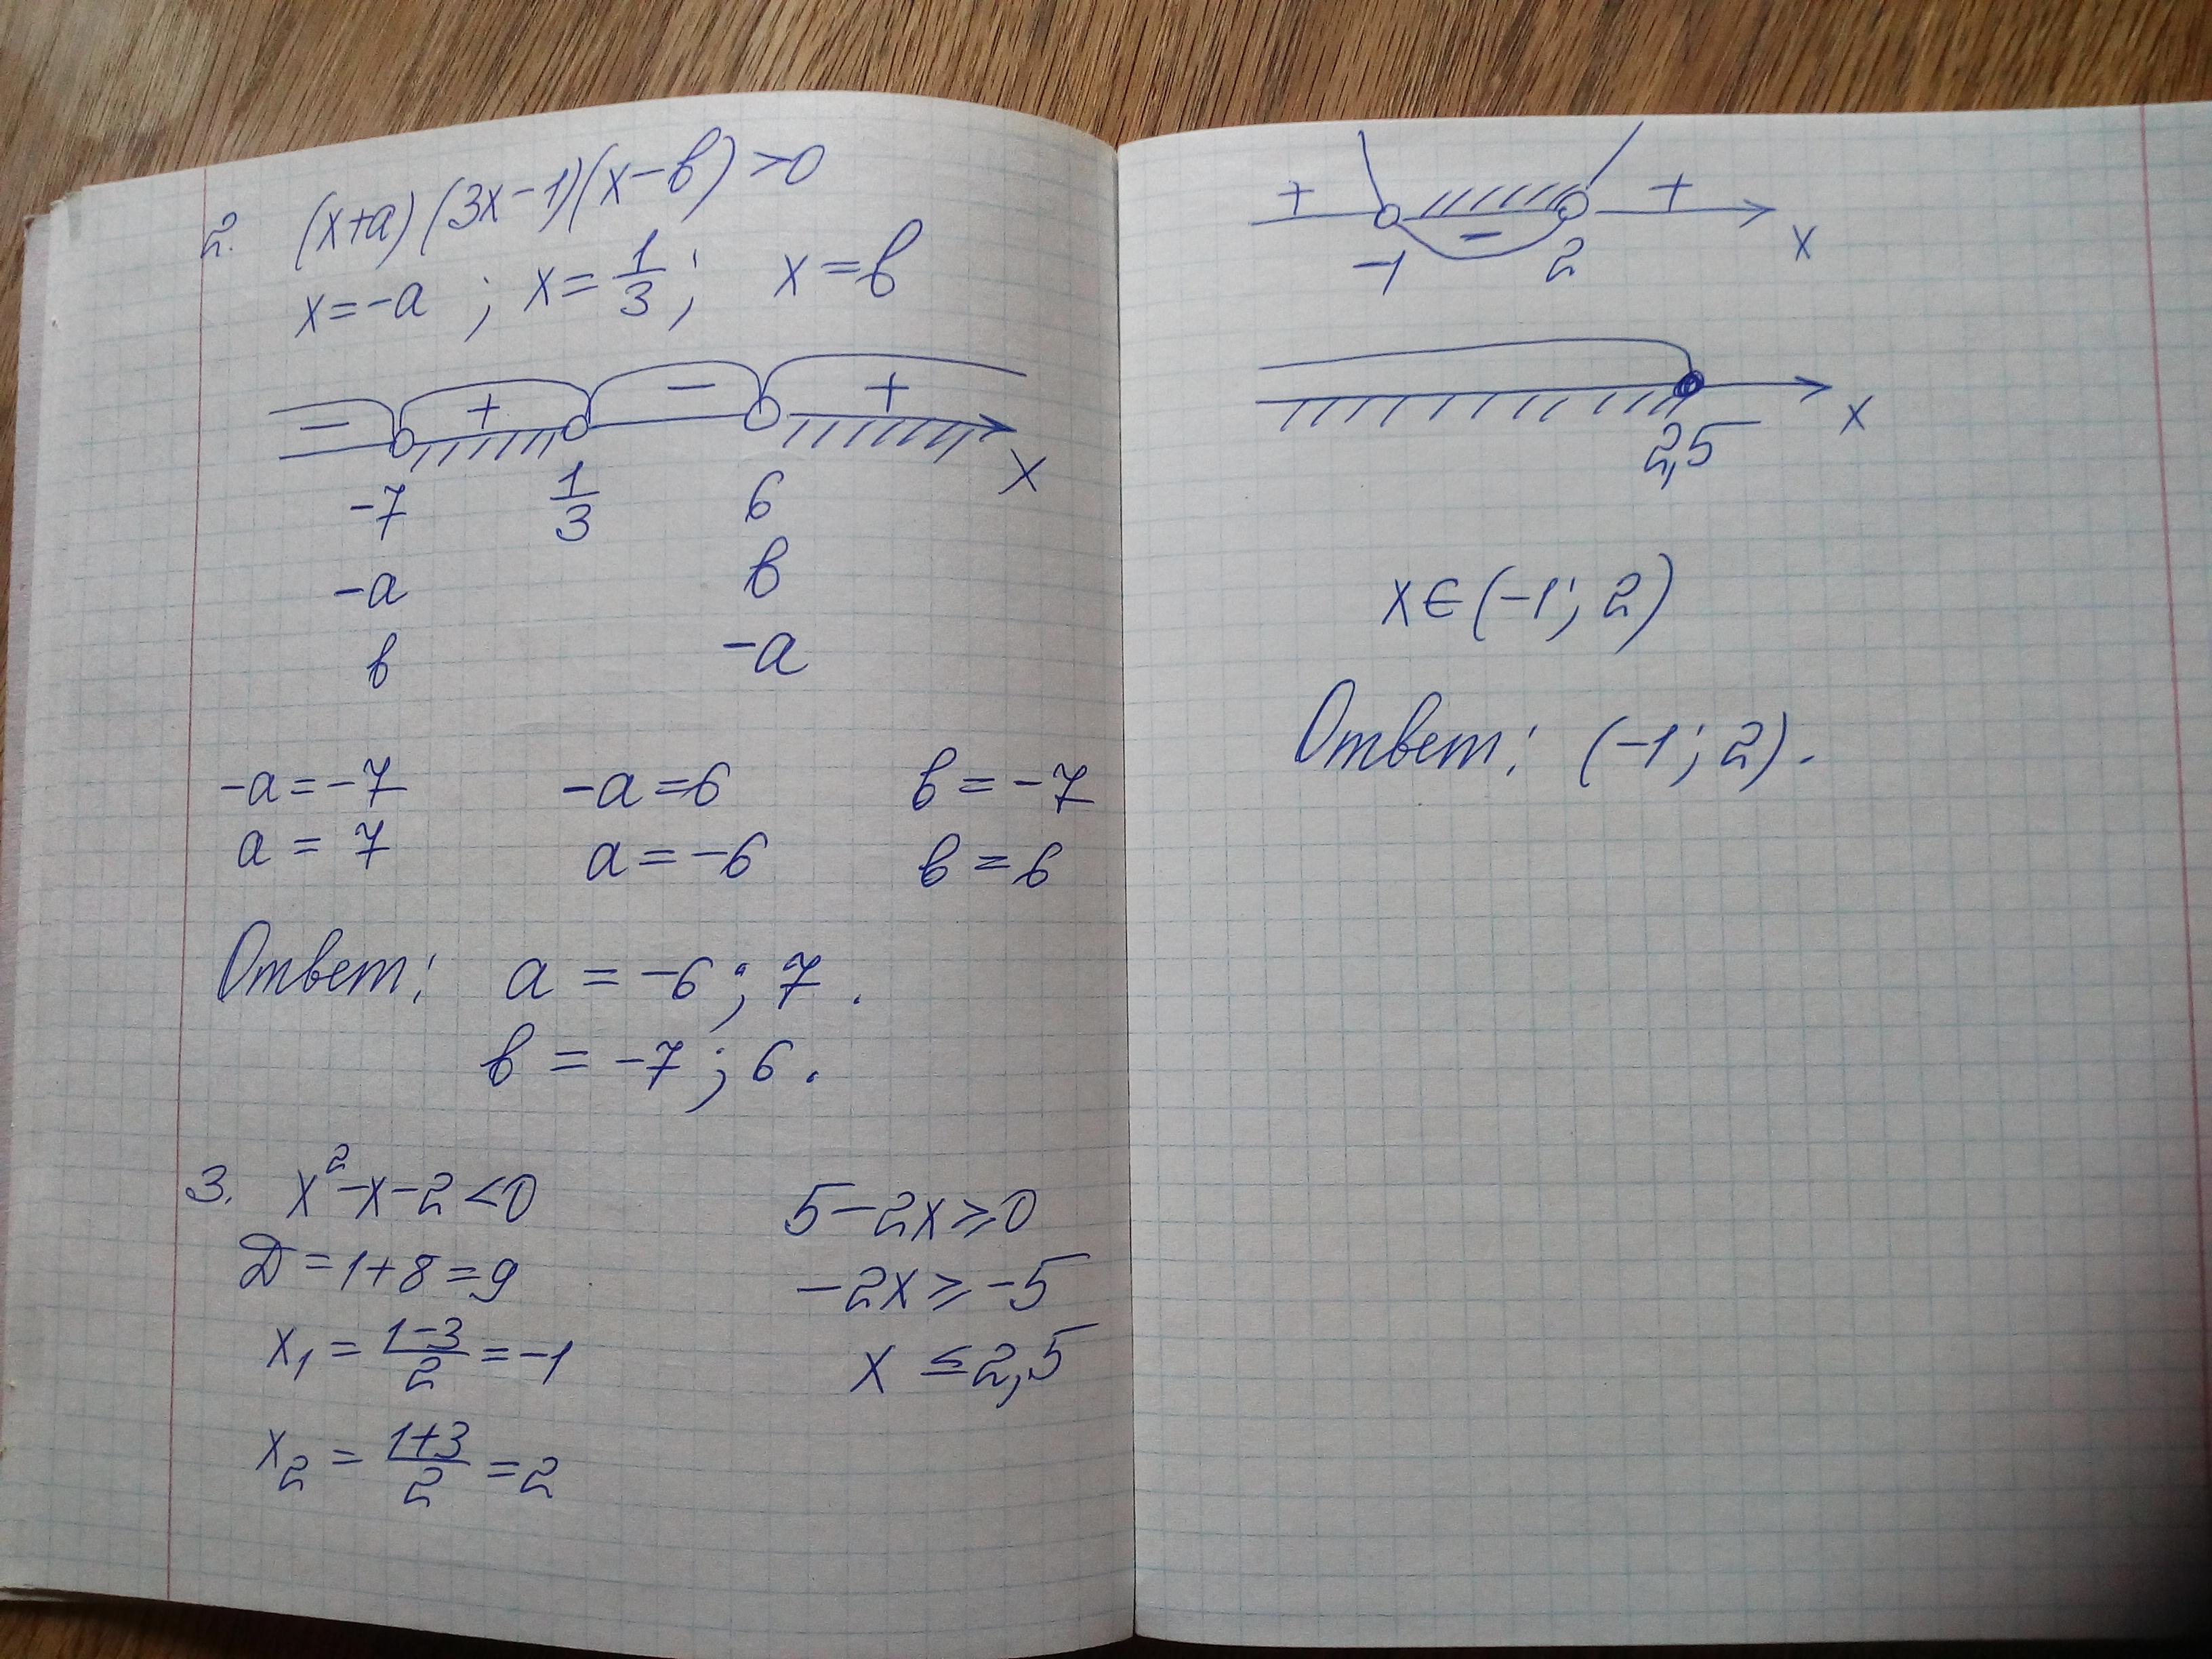 2. (x+a)(3x-1)(x-в)>0
x=-a ; x=1/3; x=в
- + - +
-7 1/3 6 x
-a в
в -a
-a=-7 -a=6 в=-7
a=7 a=-6 в=6
Ответ: a=-6; 7.
в=-7; 6.
3. x²-x-2<0 5-2x⩾0
Д=1+8=9 -2x⩾-5
x₁=(1-3)/2=-1 x≤2,5
x₂=(1+3)/2=2
+ - +
-1 2 x
2,5 x
x∈(-1; 2)
Ответ: (-1; 2).